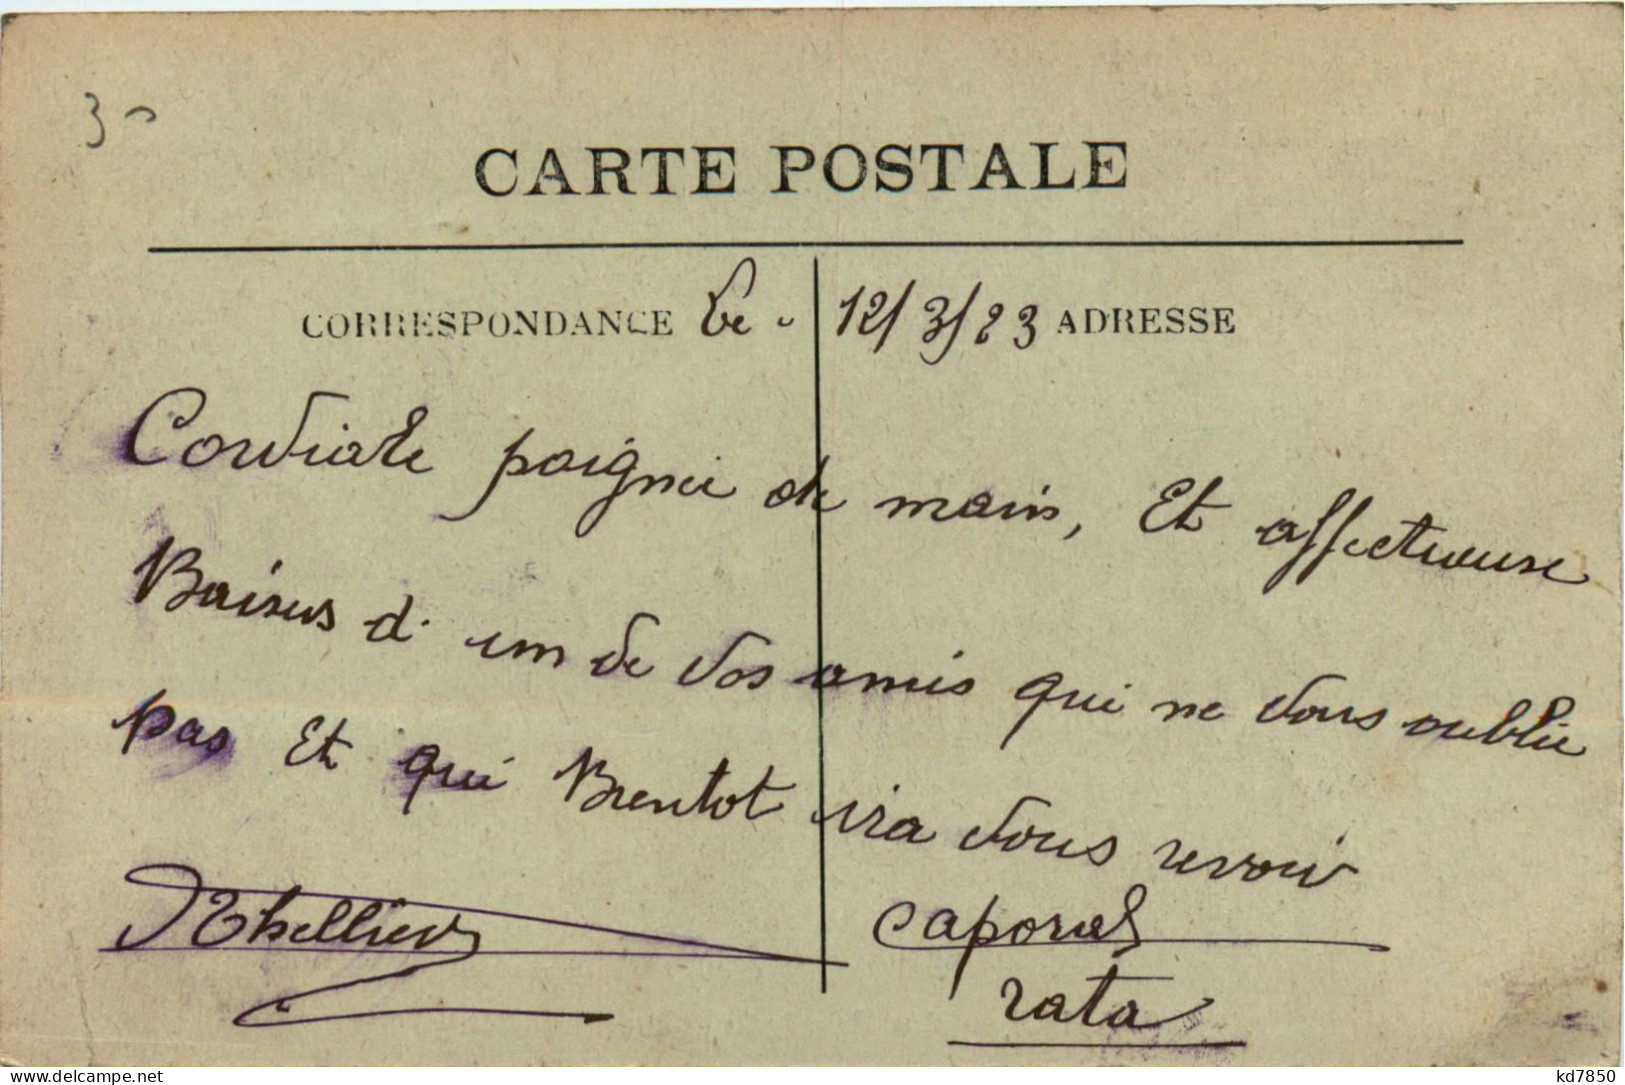 3
CARTE POSTALE
CORRESPONDANCE Le - 12/3/23 ADRESSE
Cordiale poignée de main, Et affectueuse
Baisers d'un de vos amis qui ne vous oublie
pas Et qui Bientot ira vous revoir
caporal
rata
kd7850